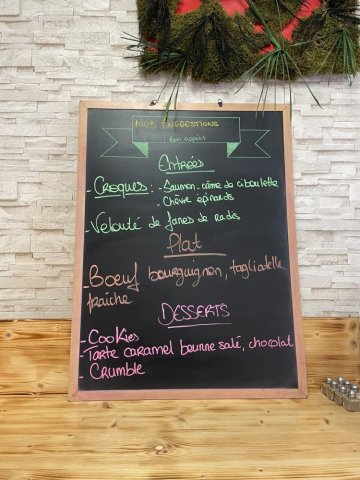 NOS SUGGESTIONS
Bon appétit
Entrées
- Croques : - Saumon - crème de ciboulette
- Chèvre épinards
- Velouté de fanes de radis
Plat
- Boeuf bourguignon, tagliatelle
fraîche
DESSERTS
- Cookies
- Tarte caramel beurre salé, chocolat
- Crumble